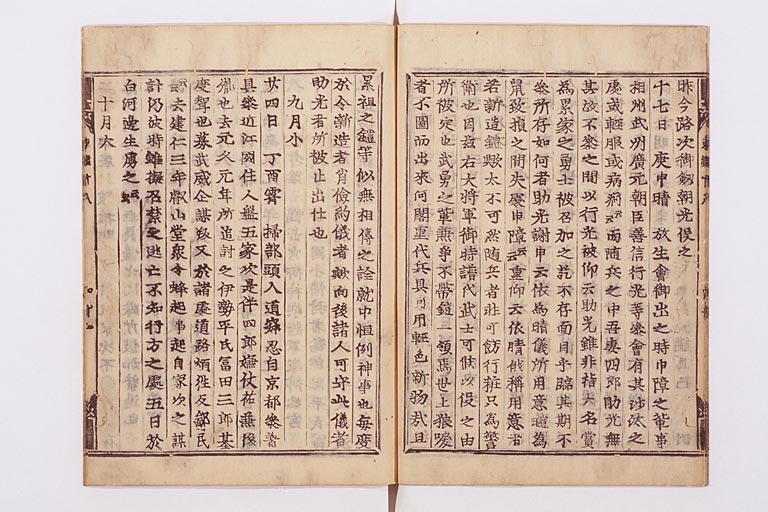 昨今路次御釼朝光役之
十七日 庚申晴 放生會御出之時申障之輩事
相州武州廣元朝臣善信行光等參會有其沙汰之
處或輕服或病痾云云而随兵之中吾妻四郎助光無
其故不參之間以行光被仰云助光雖非指大名賞
為累家之勇士被召加之訖不存面目乎臨其期不
參所存如何者助光謝申云依為晴儀所用意鎧為
鼠致損之間失度申障云云重仰云依晴儀稱用意者
若新造鎧歟太不可然随兵者非可餝行粧只為警
衛也因玆右大將軍御時譜代武士可候此役之由
所被定也武勇之輩兼爭不帶鎧一領焉世上狼唳
者不圖而出來何閣重代兵具可用輕色新物哉且
累祖之鎧等似無相傳之詮就中恒例神事也毎度
於令新造者背儉約儀者歟向後諸人可守此儀者
助光者所被止出仕也
九月小
廿四日 丁酉霽 掃部頭入道寂忍自京都參著
具參近江國住人盤五家次是伴四郎傔仗祐兼後
胤也去元久元年所追討之伊勢平氏冨田三郎基
度聟也慕武威企謀叛又於諸處道路煩往反諸民
云云去建仁三年叡山堂衆令蜂起事起自家次之謀
計仍彼時雖擬召禁之逃亡不知行方之處五日於
白河邊生虜之云云
十月大